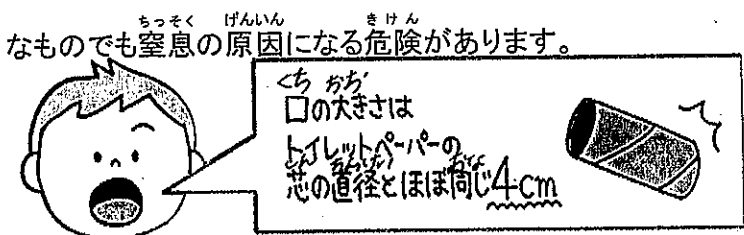 なものでも窒息の原因になる危険があります。
口の大きさは
トイレットペーパーの
芯の直径とほぼ同じ4cm